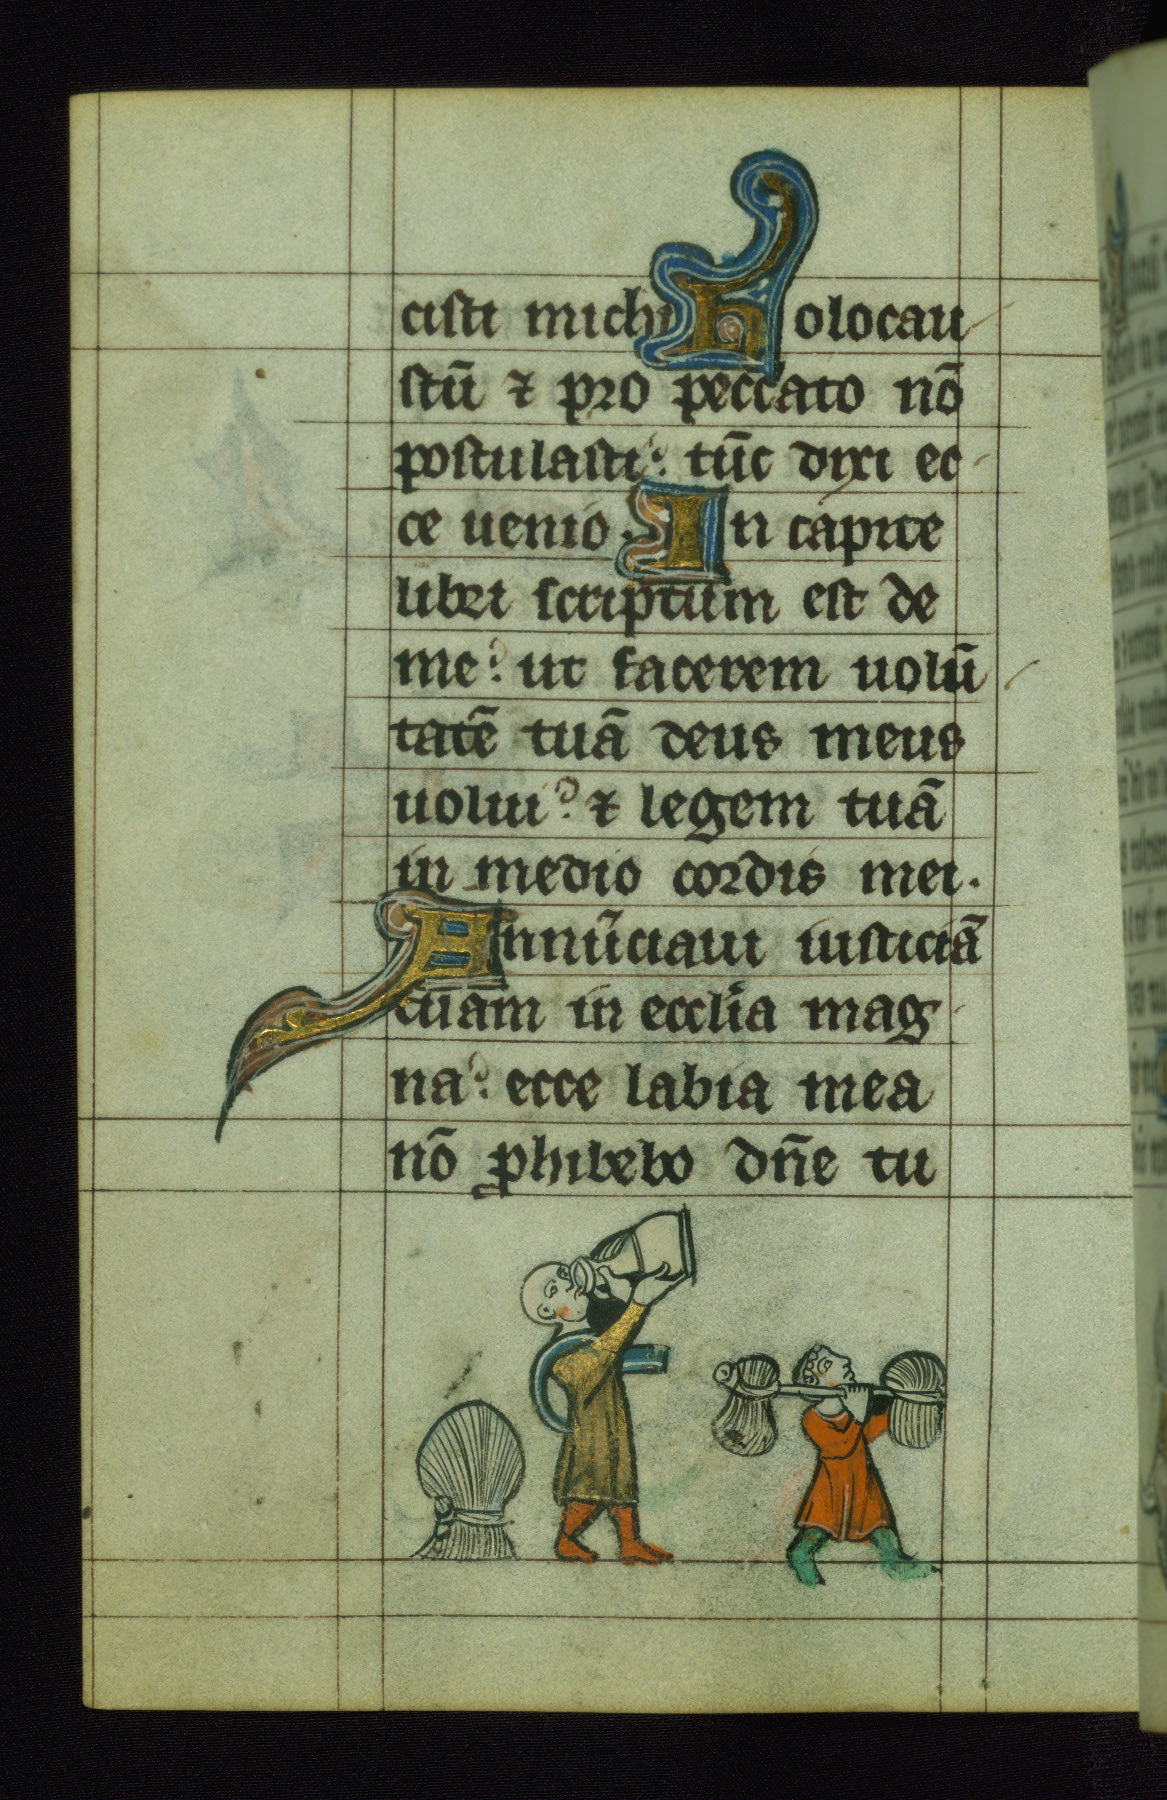 cisti michi Holocau
stū ⁊ pro peccato nō
postulasti: tūc dixi ec
ce uenio. In capite
libri scriptum est de
me: ut facerem uolū
tatē tuā deus meus
uolui: ⁊ legem tuā
in medio cordis mei.
Annūciaui iusticiā
tuam in ecclīa mag
na: ecce labia mea
nō ꝓhibebo dn̄e tu